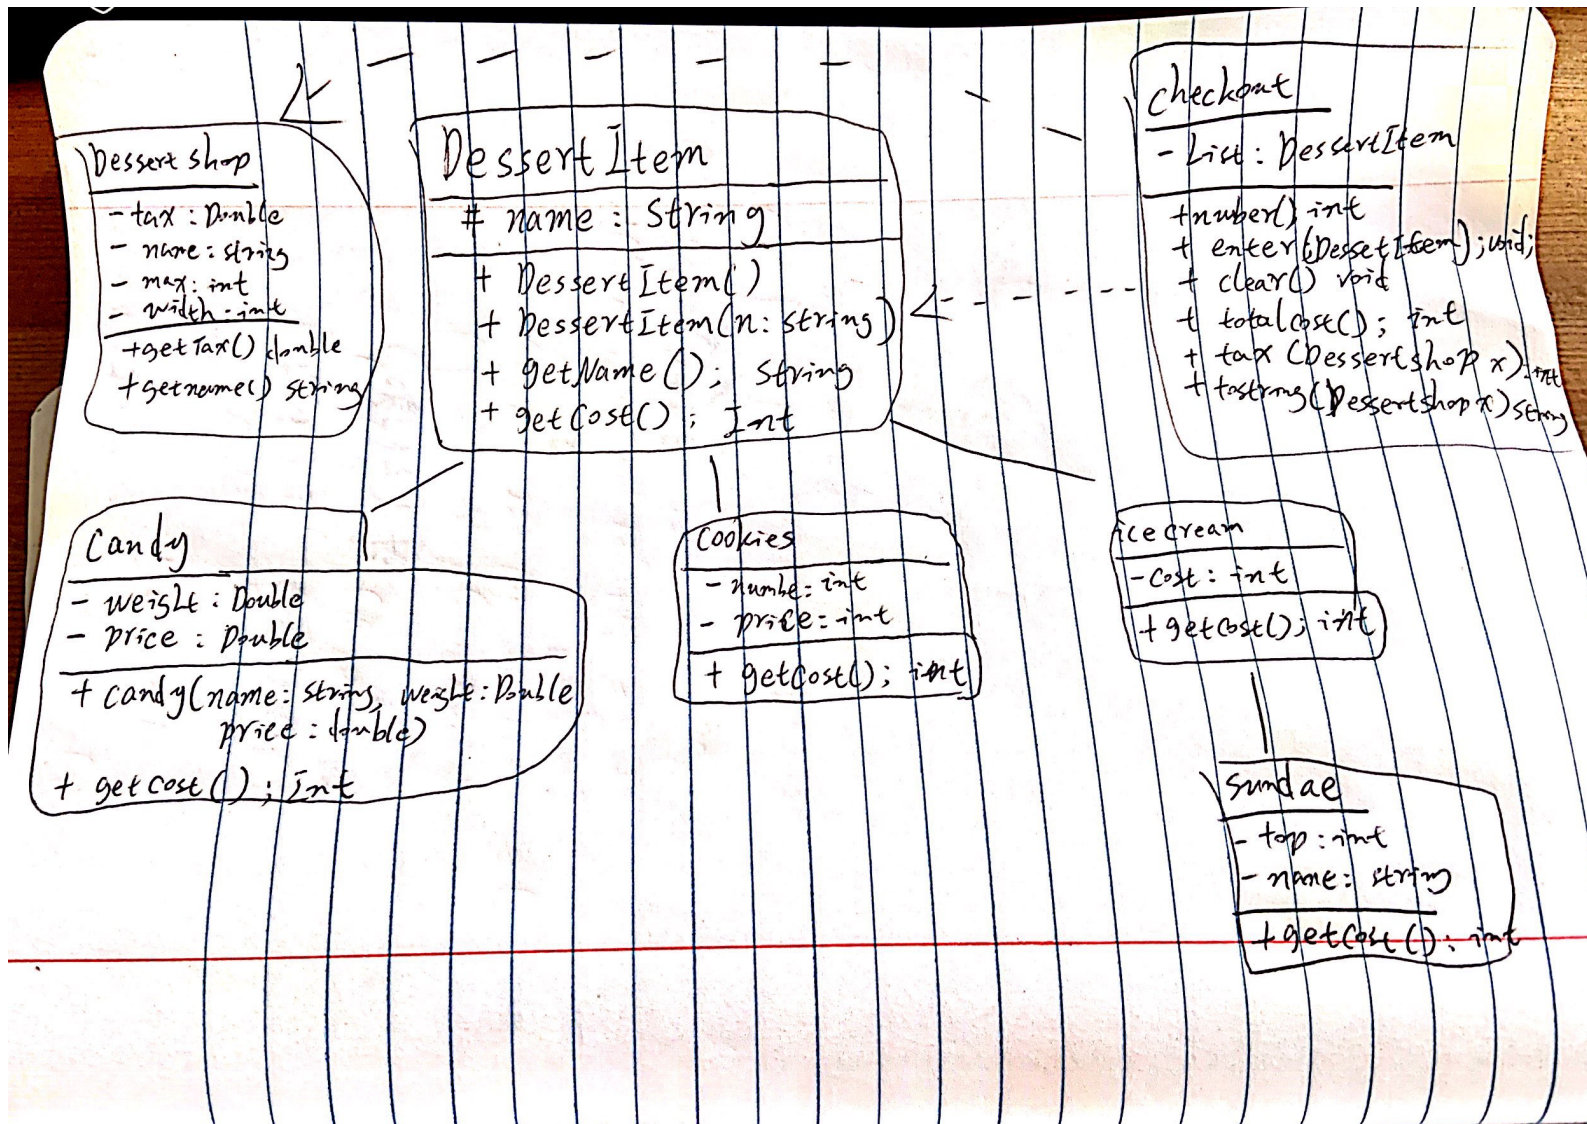 Dessert shop
- tax : Double
- name : string
- max : int
- width - int
+getTax() double
+getname() string
Dessert Item
# name : String
+ DessertItem()
+ DessertItem(n: string)
+ getName(); string
+ getCost(); Int
checkout
- List : DessertItem
+nuber() int
+ enter(DessetItem); void;
+ clear() void
+ totalcost(); int
+ tax (Dessertshop x). int
+ tostring(Dessertshop x) string
Candy
- weight : Double
- price : Double
+ candy(name: string, weight: Double
price : double)
+ getcost() ; Int
Cookies
- numbe: int
- price: int
+ getcost(); int
ice cream
- cost : int
+ getcost(); int
sundae
- top : int
- name : string
+ getcost() : int